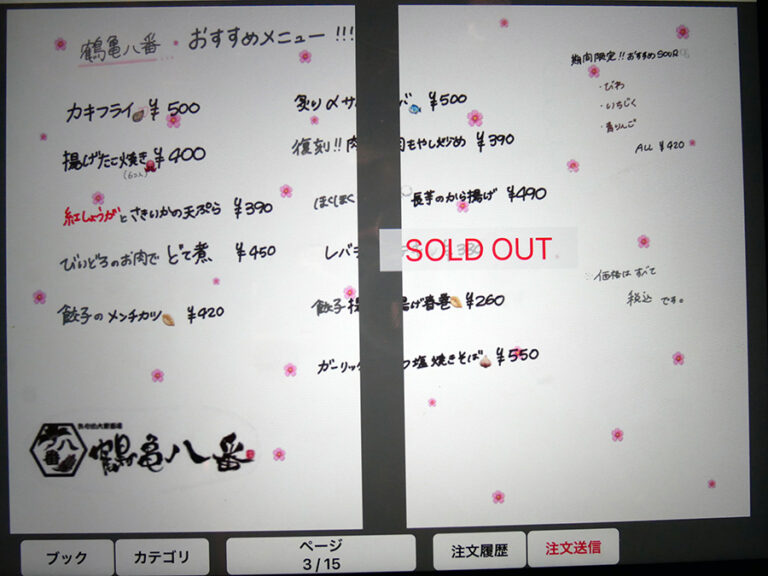 鶴亀八番... おすすめメニュー!!!
カキフライ ¥500
揚げたこ焼き ¥400
(6コ入)
紅しょうがとさきいかの天ぷら ¥390
びいどろのお肉で どて煮 ¥450
餃子のメンチカツ ¥420
炙り〆サ バ ¥500
復刻!! 肉 肉もやし炒め ¥390
ほくほく 長芋のから揚げ ¥490
レバ
SOLD OUT
餃子 揚げ春巻 ¥260
ガーリック つ塩焼きそば ¥550
期間限定!! おすすめSOUR
・びわ
・いちじく
・青りんご
ALL ¥420
価格はすべて
税込です。
鶴亀八番
ブック
カテゴリ
ページ
3 / 15
注文履歴
注文送信